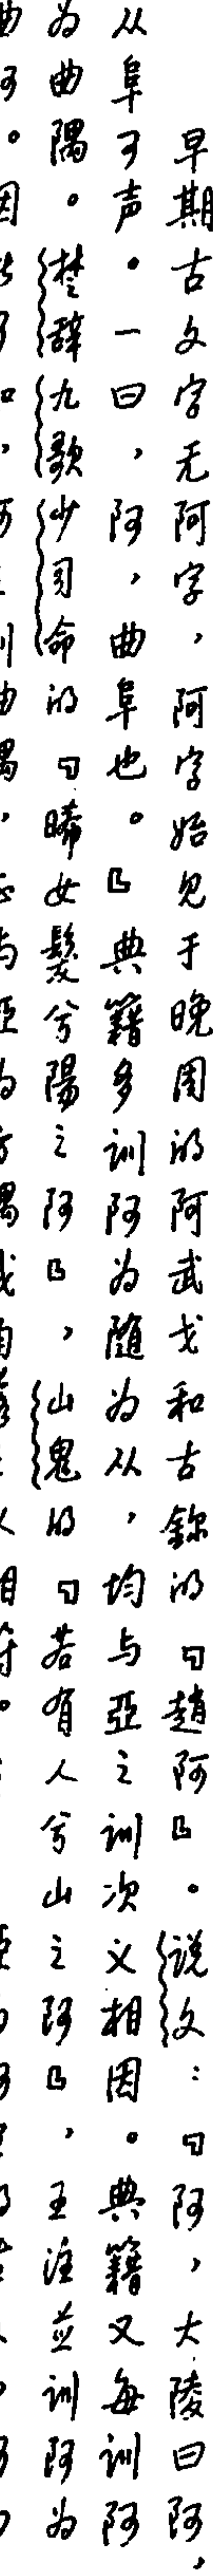 早期古文字无阿字，阿字始见于晚周的阿武戈和古鉨的『趙阿』。说文：『阿，大陵曰阿，
从阜可声。一曰，阿，曲阜也。』典籍多训阿为随为从，均与亞之训次义相因。典籍又每训阿
为曲隅。楚辞九歌少司命的『晞女髮兮陽之阿』，山鬼的『若有人兮山之阿』，王注並训阿为